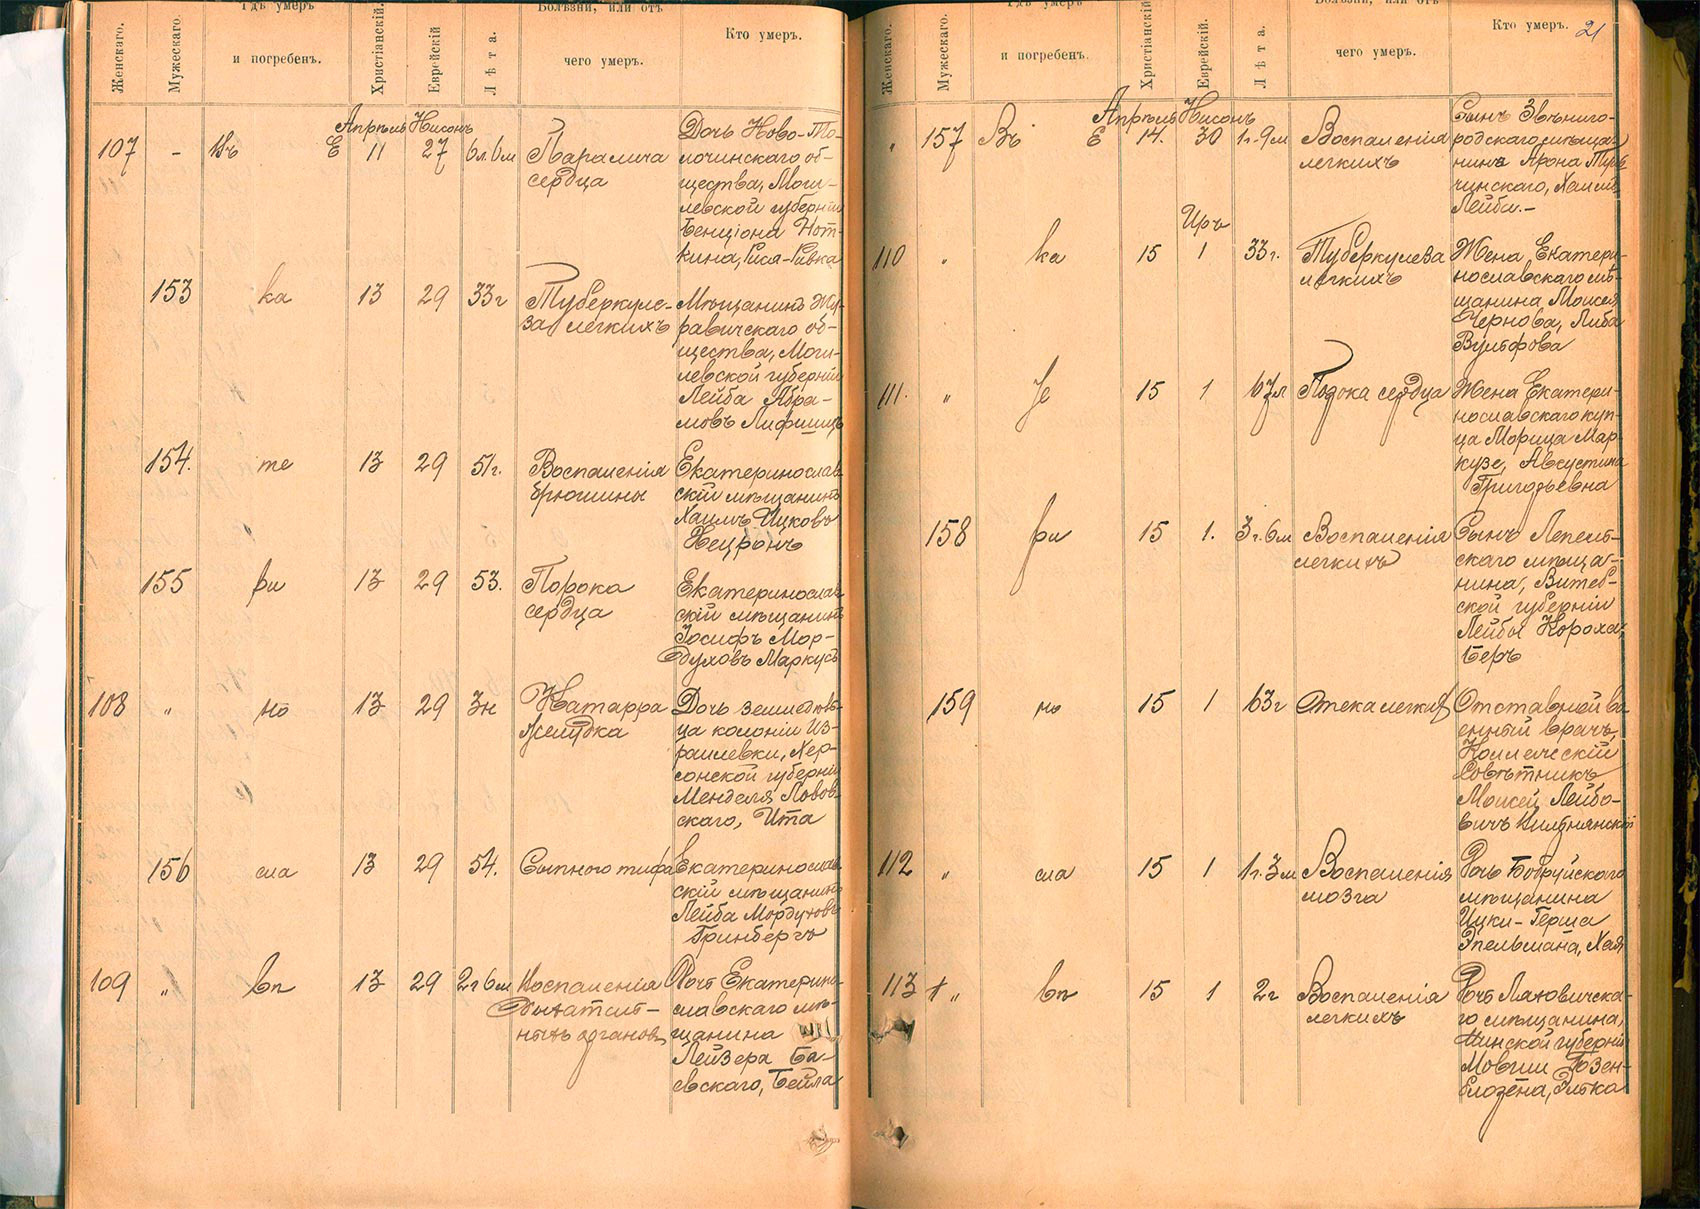 Женскаго.
Мужескаго.
Гдѣ умеръ
и погребенъ.
Христіанскій.
Еврейскій
Лѣта.
Болѣзни, или отъ
чего умеръ.
Кто умеръ.
Апрѣль Нисонъ
107 - Въ Е 11 27 6л.6м
Паралича
сердца
Дочь Ново-То-
лочинскаго об-
щества, Моги-
левской губерніи
Бенціона Нот-
кина, Гися-Ривка
153 ка 13 29 33г
Туберкуле-
за легкихъ
Мѣщанинъ Жу-
равичскаго об-
щества, Моги-
левской губерніи
Лейба Абра-
мовъ Лифшицъ
154. те 13 29 51г.
Воспаленія
брюшины
Екатеринослав
скій мѣщанинъ
Хаимъ Ицковъ
155 ри 13 29 53.
Порока
сердца
Екатеринослав
скій мѣщанинъ
Іосифъ Мор-
духовъ Маркусъ
108 „ но 13 29 3н
Катарра
желудка
Дочь земледѣль
ца колоніи Из-
раилевки, Хер-
сонской губерніи
Менделя Ловов
скаго, Ита
156 сла 13 29 54.
Сыпного тифа
Екатеринослав
скій мѣщанинъ
Лейба Мордуховъ
Гринбергъ
109 „ вп 13 29 2г 6м
Воспаленія
дыхатель-
ныхъ органовъ
Дочь Екатерино
славскаго мѣ-
щанина
Лейзера Ба-
евскаго, Бейла
Женскаго.
Мужескаго.
Гдѣ умеръ
и погребенъ.
Христіанскій
Еврейскій.
Лѣта.
Болѣзни, или отъ
чего умеръ.
Кто умеръ.
21
Апрѣль Нисонъ
„ 157 Въ Е 14. 30 1г.9м
Воспаленія
легкихъ
Сынъ Звѣниго-
родскаго мѣща-
нина Арона Туль
чинскаго, Хаимъ
Лейби.-
Иръ
110 „ ка 15 1 33г.
Туберкулеза
легкихъ
Жена Екатери-
нославскаго мѣ-
щанина Моисея
Чернова, Либа
Вульфова
111. „ те 15 1 67л
Порока сердца
Жена Екатери-
нославскаго куп-
ца Морица Мар-
кузе, Августина
Григорьевна
158 ри 15 1. 3г.6м
Воспаленія
легкихъ
Сынъ Лепель-
скаго мѣща-
нина, Витеб-
ской губерніи
Лейбы Короха,
Беръ
159 но 15 1 63г
Отека легкихъ
Отставной во
енный врачъ,
Коллежскій
Совѣтникъ
Моисей Лейбо-
112 „ сла 15 1 1г.3м
Воспаленія
мозга
Дочь Бобруйскаго
мѣщанина
Ицки-Герша
Эпельмана, Хая
113 „ вп 15 1 2г
Воспаленія
легкихъ
Дочь Ляховичска-
го мѣщанина,
Минской губерніи
Мовши Розен-